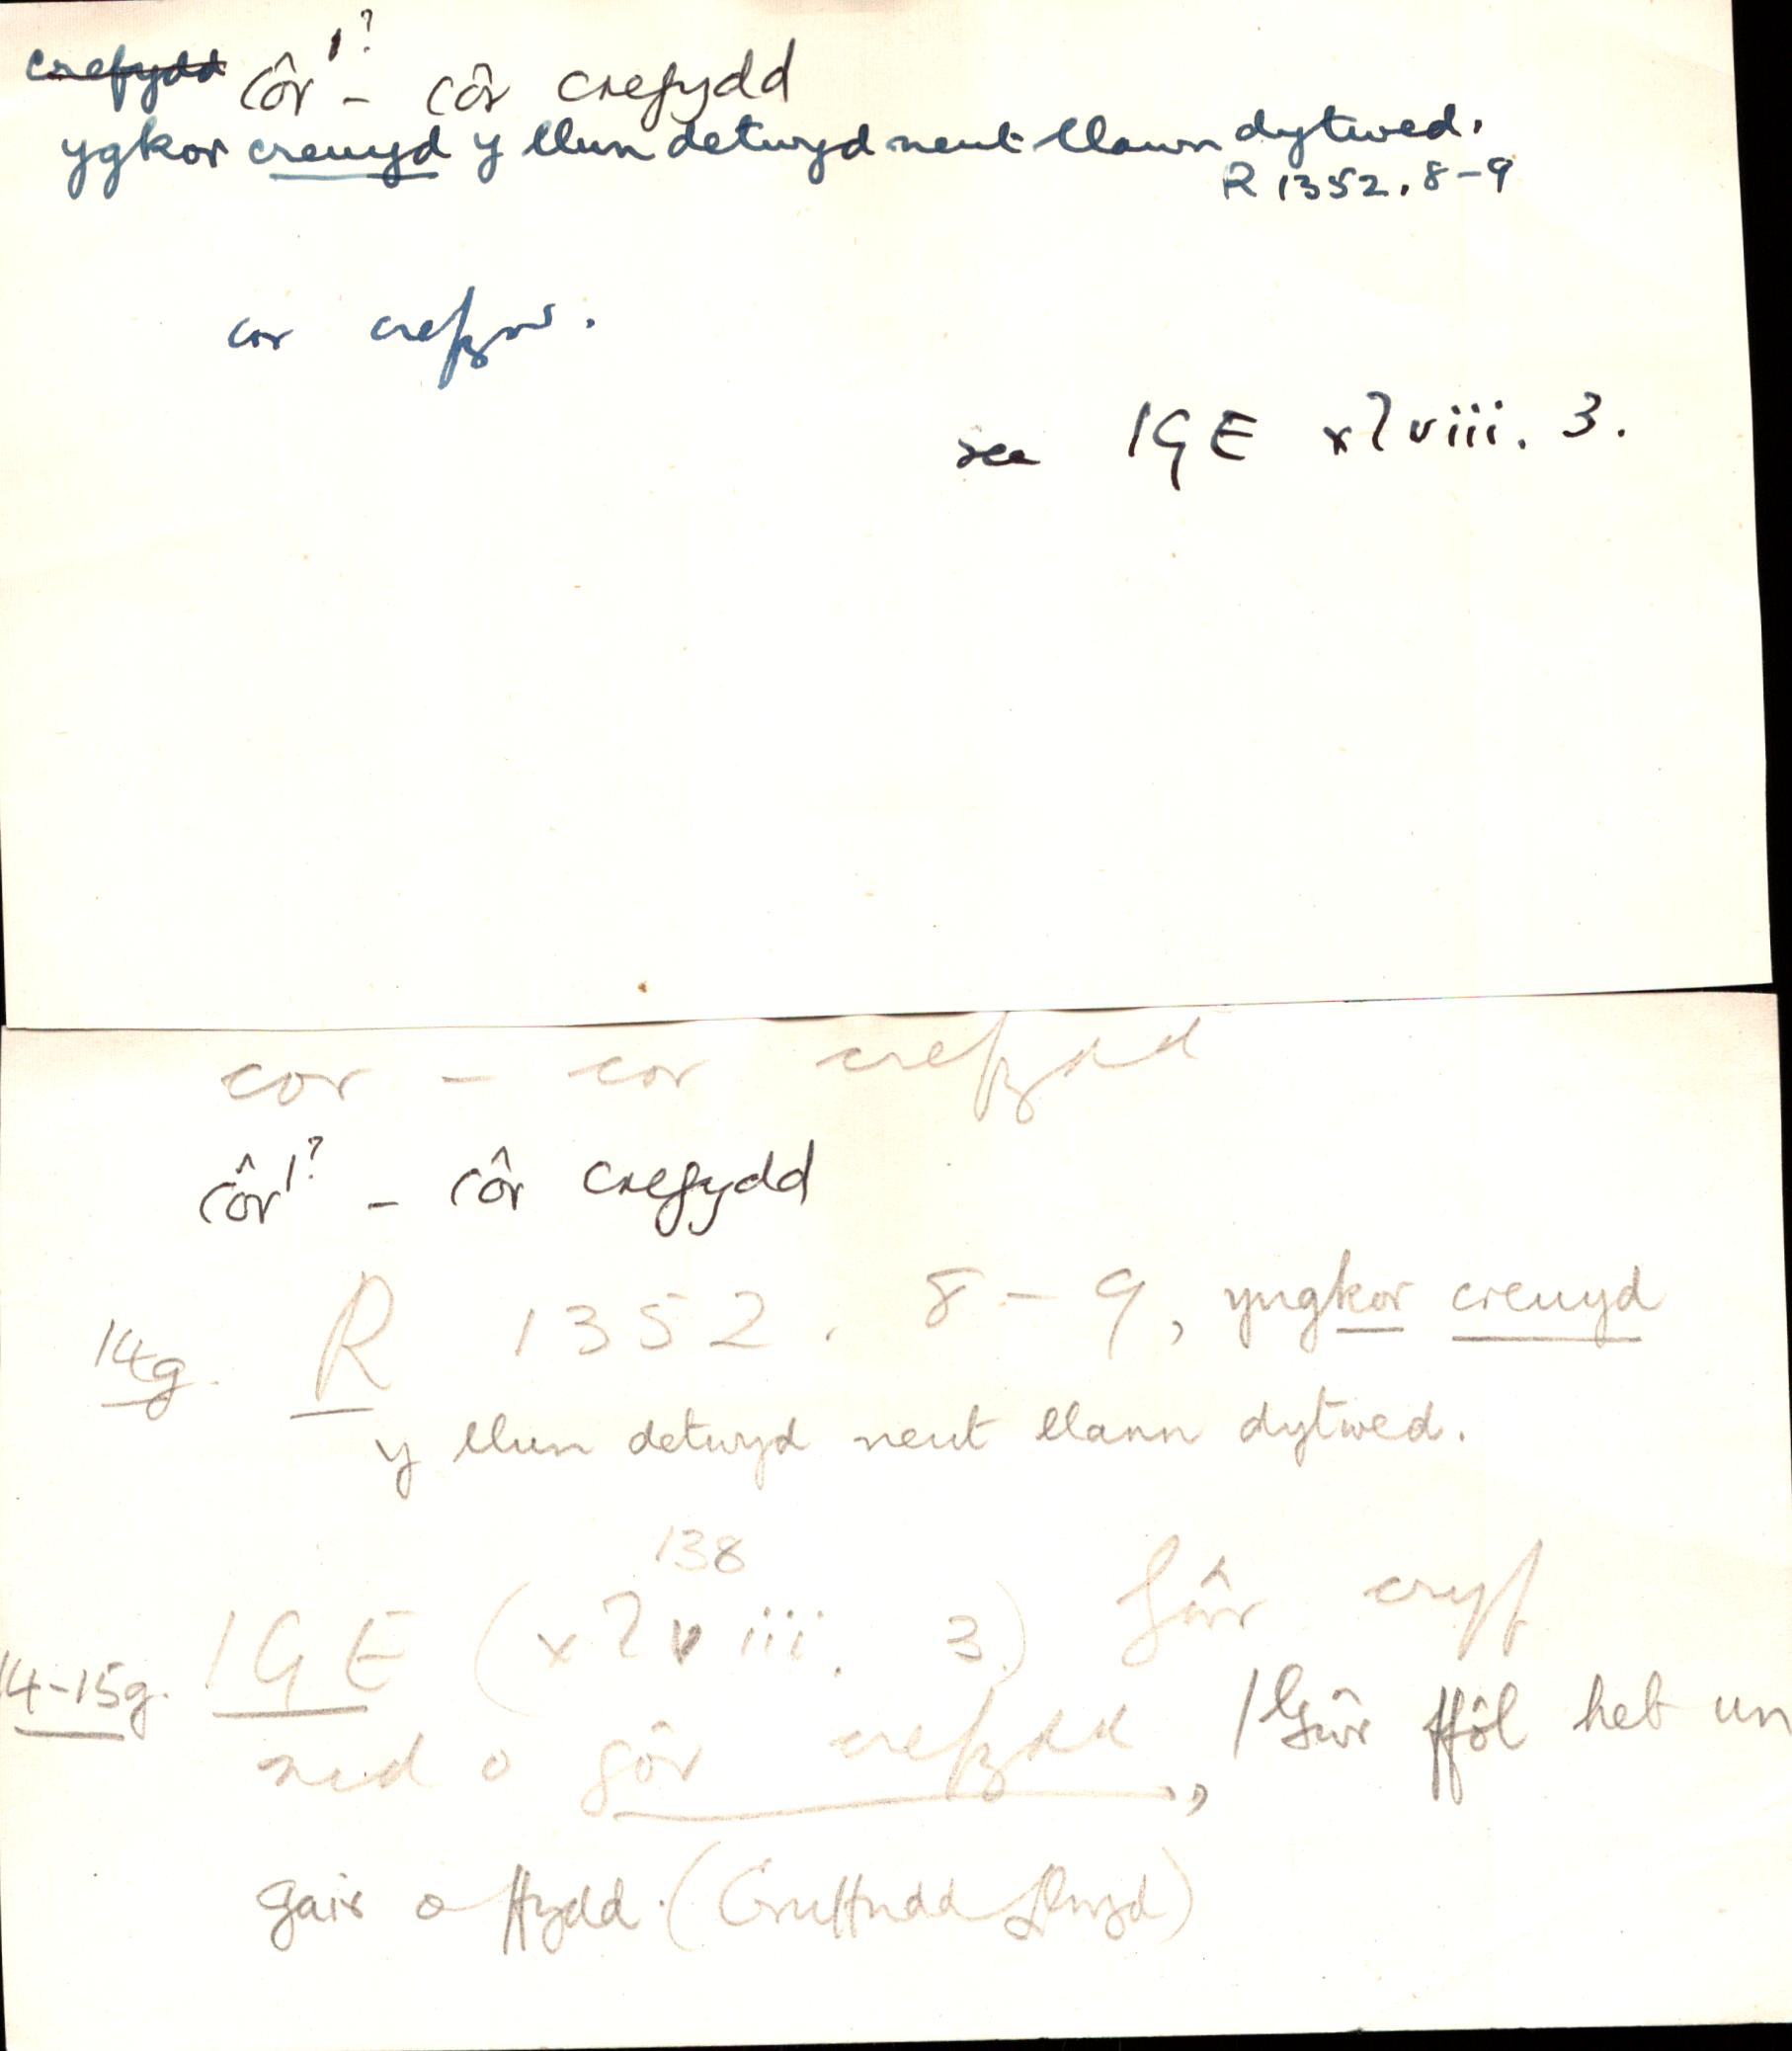 crefydd côr¹? – côr crefydd
ygkor creuyd y llun detwyd neut llawn dytwed.
R 1352. 8–9
cor crefydd.
see IGE xlviii. 3.
cor – cor crefydd
côr¹? – côr crefydd
14g. R 1352. 8–9, yngkor creuyd
y llun detwyd neut llawn dytwed.
138
14-15g. IGE (xlviii. 3) Gŵr cryf
nid o gôr crefydd, / Gŵr ffôl heb un
gair o ffydd. (Gruffudd Llwyd)